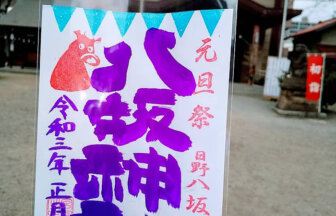 元旦祭
日野八坂
八坂神
令和三年 正月
初詣